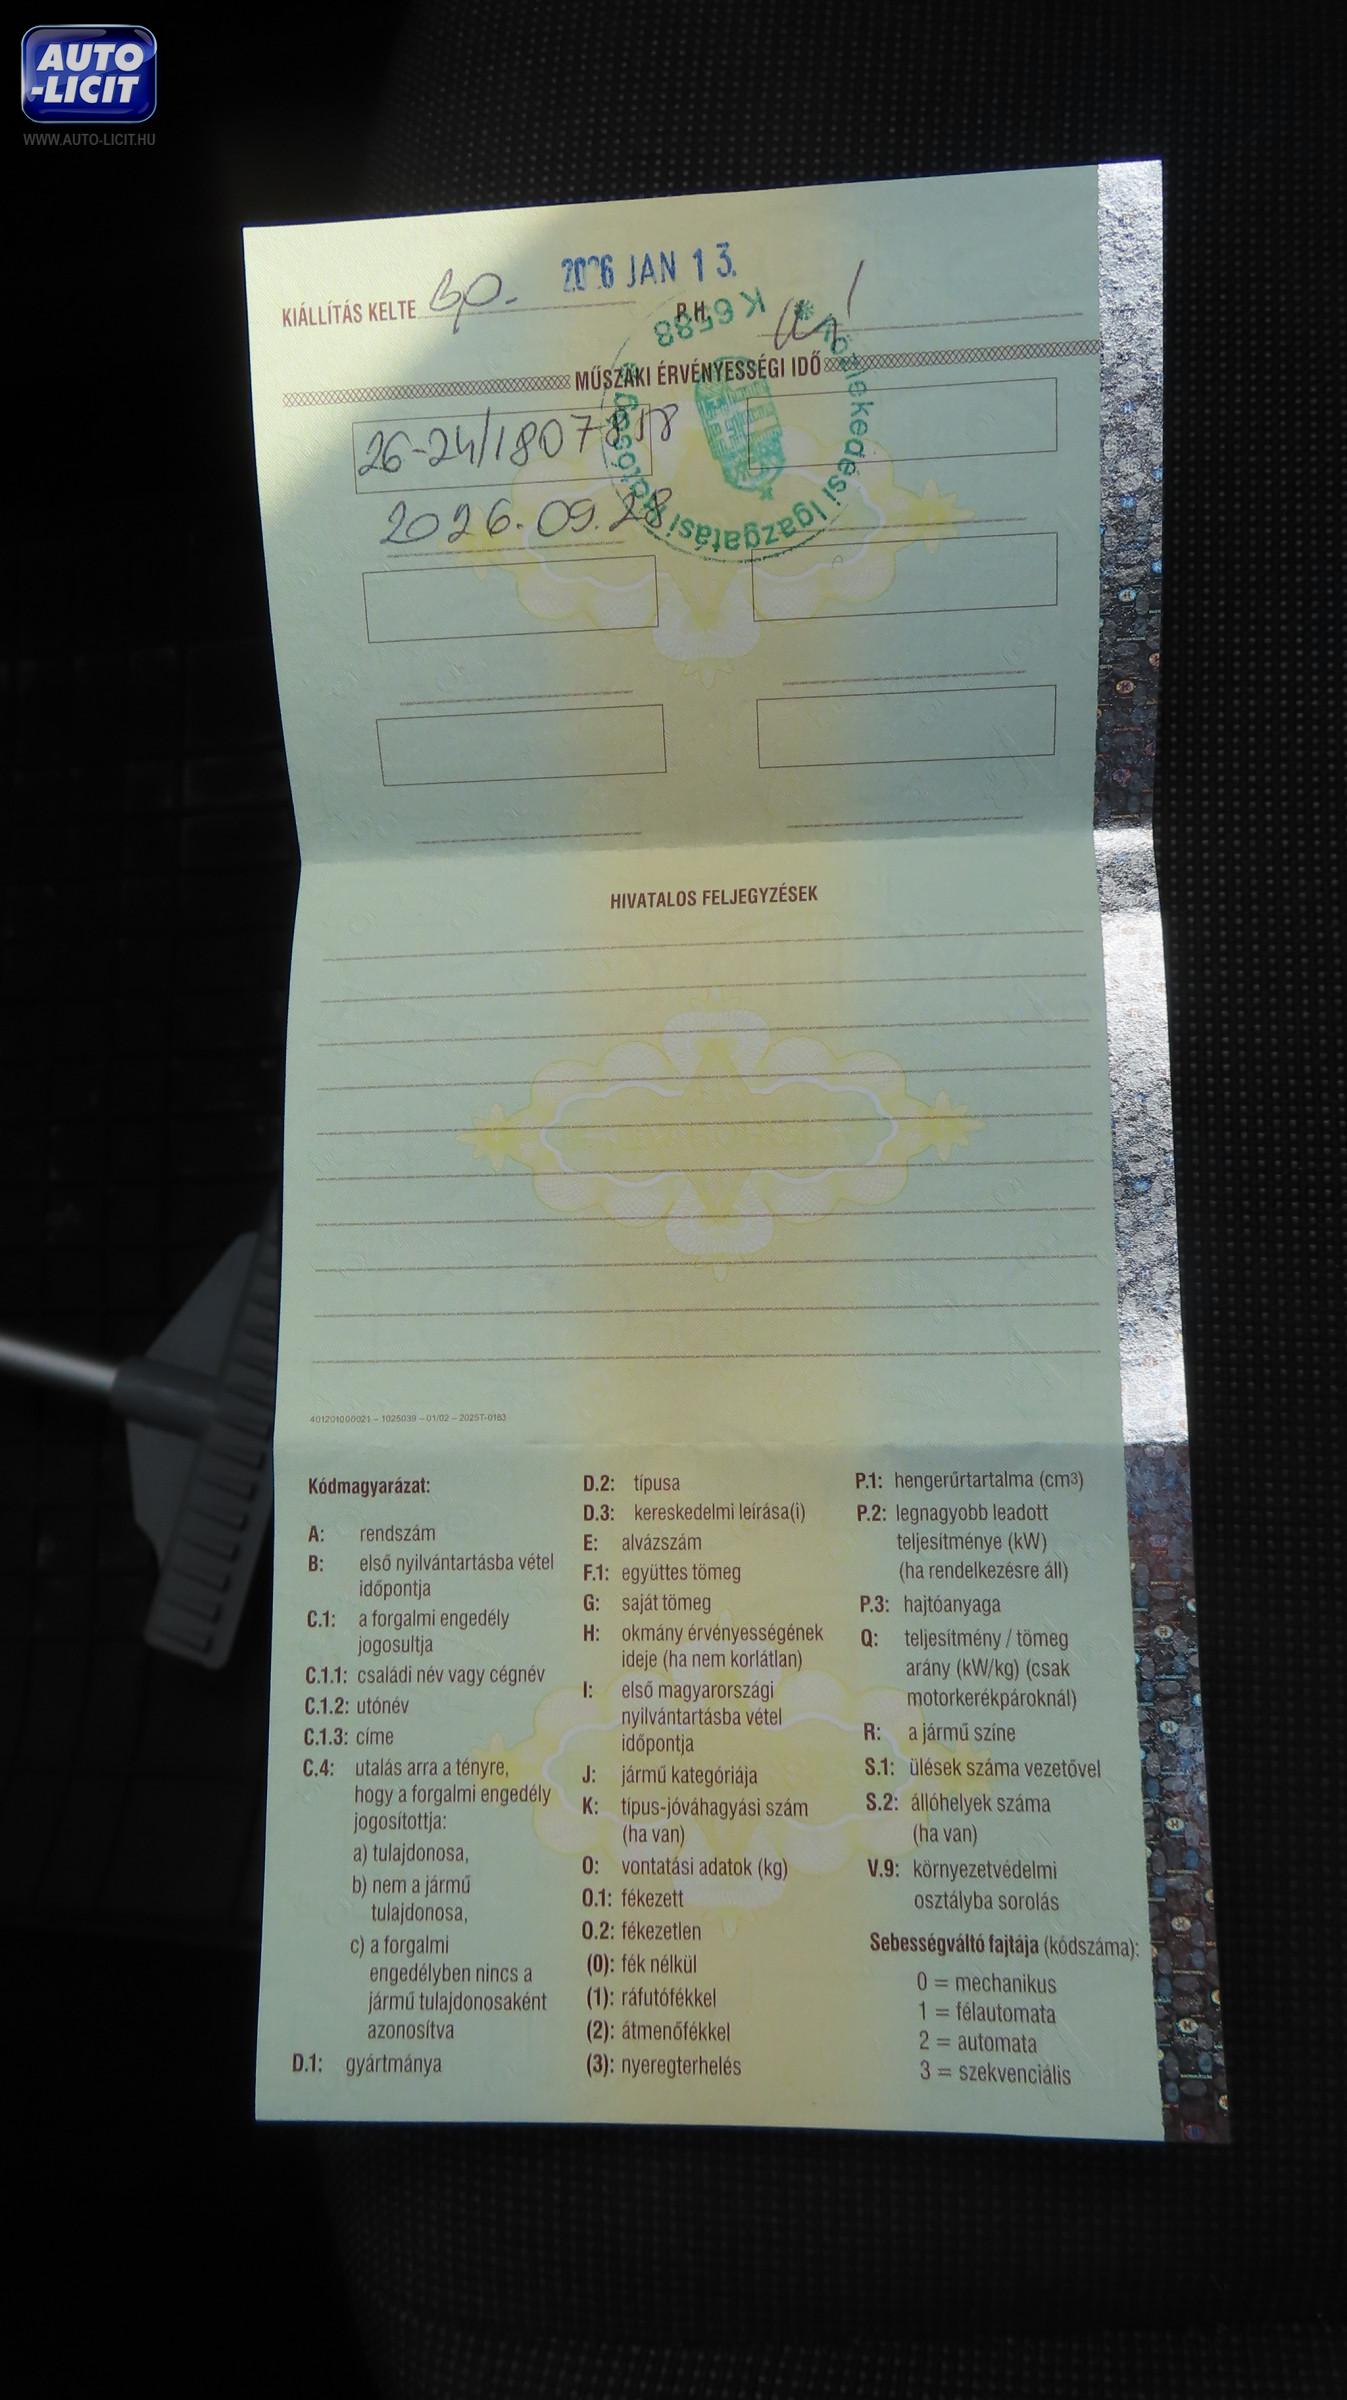 AUTO
-LICIT
WWW.AUTO-LICIT.HU
KIÁLLÍTÁS KELTE Bp. 2026 JAN 13.
P.H.
K 6588
Közlekedési Igazgatási
MŰSZAKI ÉRVÉNYESSÉGI IDŐ
26-24/1807818
2026.09.28
HIVATALOS FELJEGYZÉSEK
401201000021 – 1025039 – 01/02 – 2025T-0183
Kódmagyarázat:
A: rendszám
B: első nyilvántartásba vétel
időpontja
C.1: a forgalmi engedély
jogosultja
C.1.1: családi név vagy cégnév
C.1.2: utónév
C.1.3: címe
C.4: utalás arra a tényre,
hogy a forgalmi engedély
jogosítottja:
a) tulajdonosa,
b) nem a jármű
tulajdonosa,
c) a forgalmi
engedélyben nincs a
jármű tulajdonosaként
azonosítva
D.1: gyártmánya
D.2: típusa
D.3: kereskedelmi leírása(i)
E: alvázszám
F.1: együttes tömeg
G: saját tömeg
H: okmány érvényességének
ideje (ha nem korlátlan)
I: első magyarországi
nyilvántartásba vétel
időpontja
J: jármű kategóriája
K: típus-jóváhagyási szám
(ha van)
O: vontatási adatok (kg)
O.1: fékezett
O.2: fékezetlen
(0): fék nélkül
(1): ráfutófékkel
(2): átmenőfékkel
(3): nyeregterhelés
P.1: hengerűrtartalma (cm³)
P.2: legnagyobb leadott
teljesítménye (kW)
(ha rendelkezésre áll)
P.3: hajtóanyaga
Q: teljesítmény / tömeg
arány (kW/kg) (csak
motorkerékpároknál)
R: a jármű színe
S.1: ülések száma vezetővel
S.2: állóhelyek száma
(ha van)
V.9: környezetvédelmi
osztályba sorolás
Sebességváltó fajtája (kódszáma):
0 = mechanikus
1 = félautomata
2 = automata
3 = szekvenciális